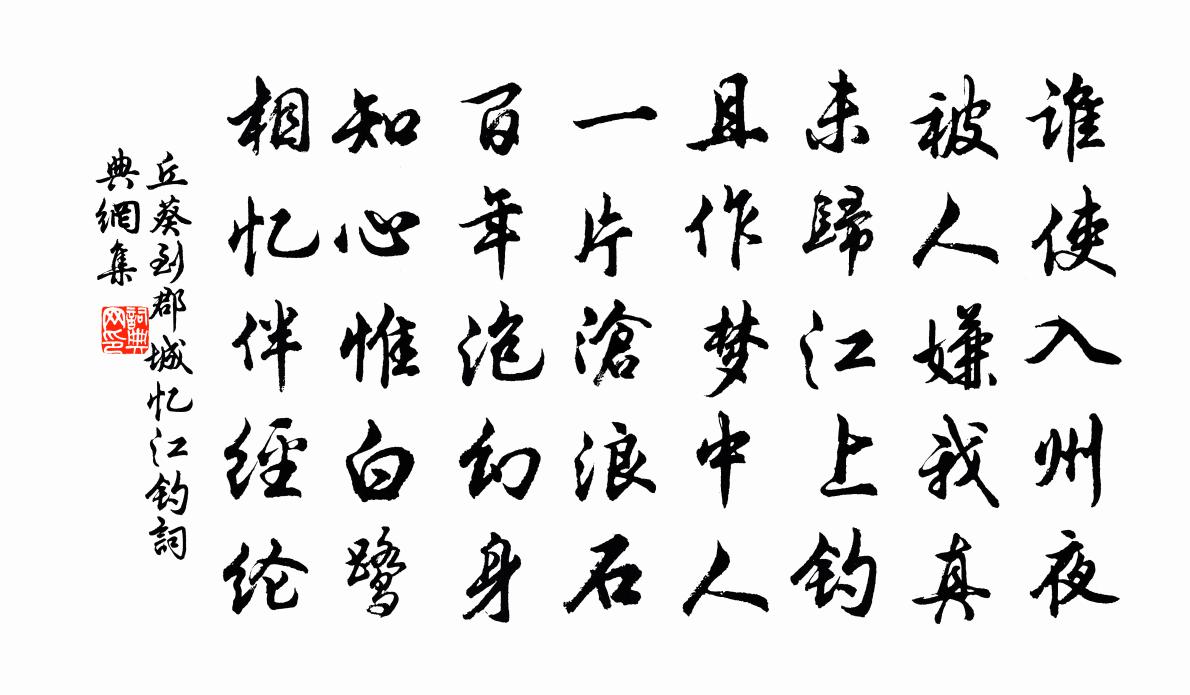 谁使入州夜
被人嫌我真
未歸江上钓
且作梦中人
一片滄浪石
百年泡幻身
知心惟白鹭
相忆伴經纶
丘葵到郡城忆江钓詞
典網集
詞典网印